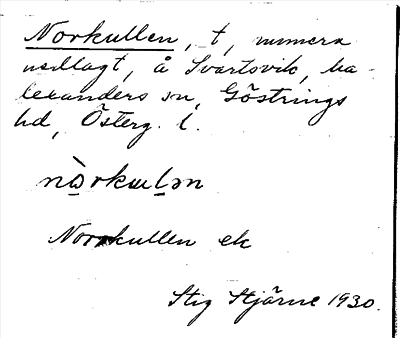 Norkullen, t, numera
nedlagt, å Svartsvik, 
 sn, Göstrings
hd, Österg. l.
nȍrkɯlən
Norrkullen ek
Stig Stjärne 1930.